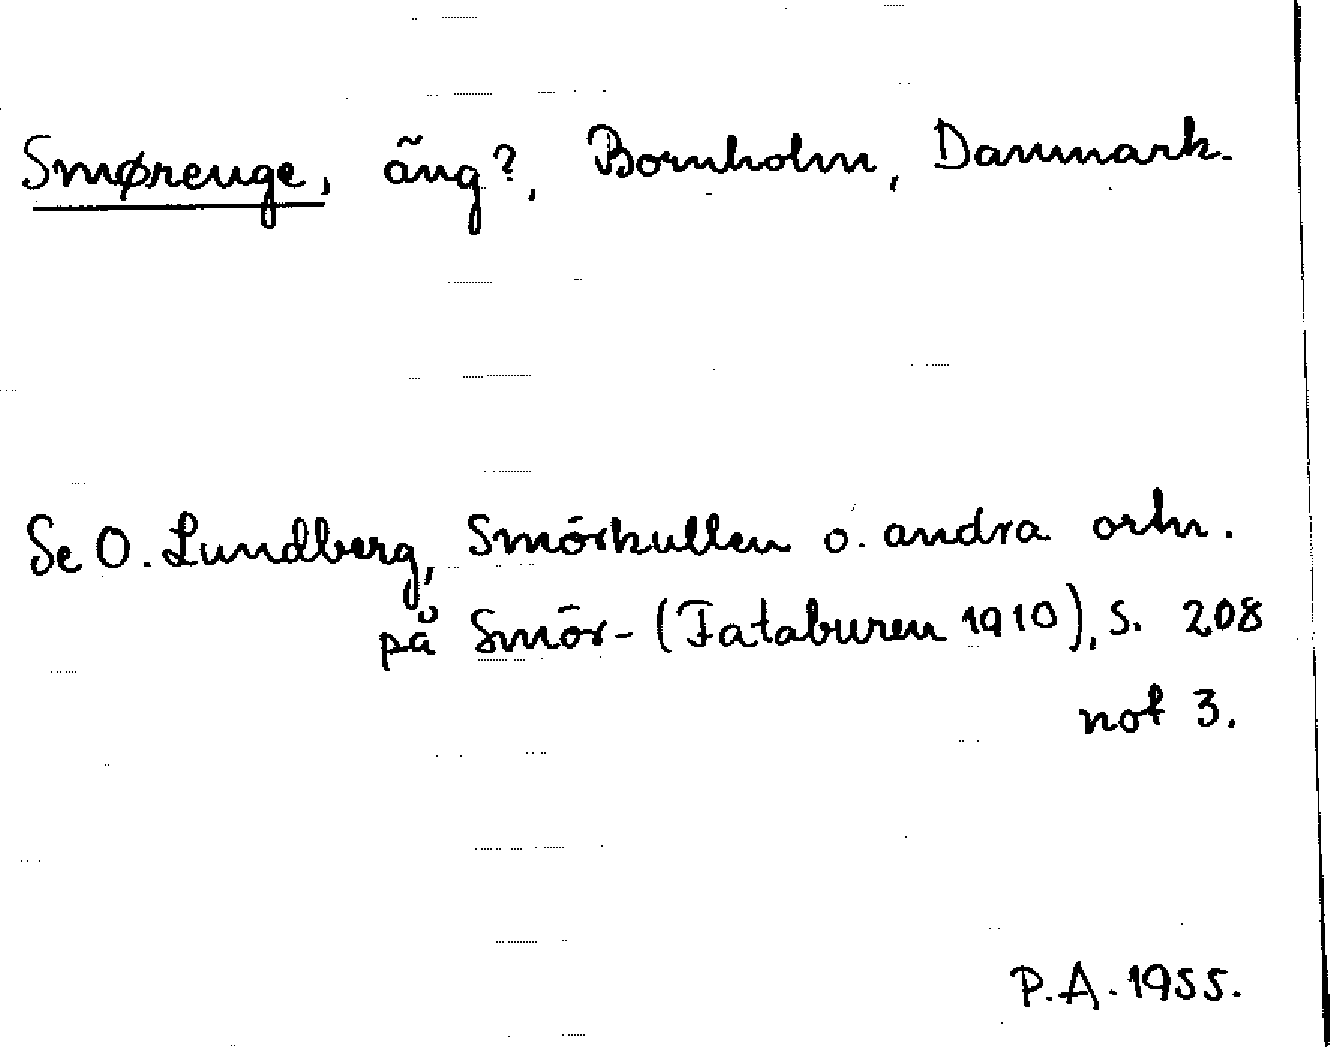 Smørenge, äng?, Bornholm, Danmark.
Se O. Lundberg, Smörkullen o. andra ortn.
på Smör- (Fataburen 1910), s. 208
not 3.
P.A. 1955.